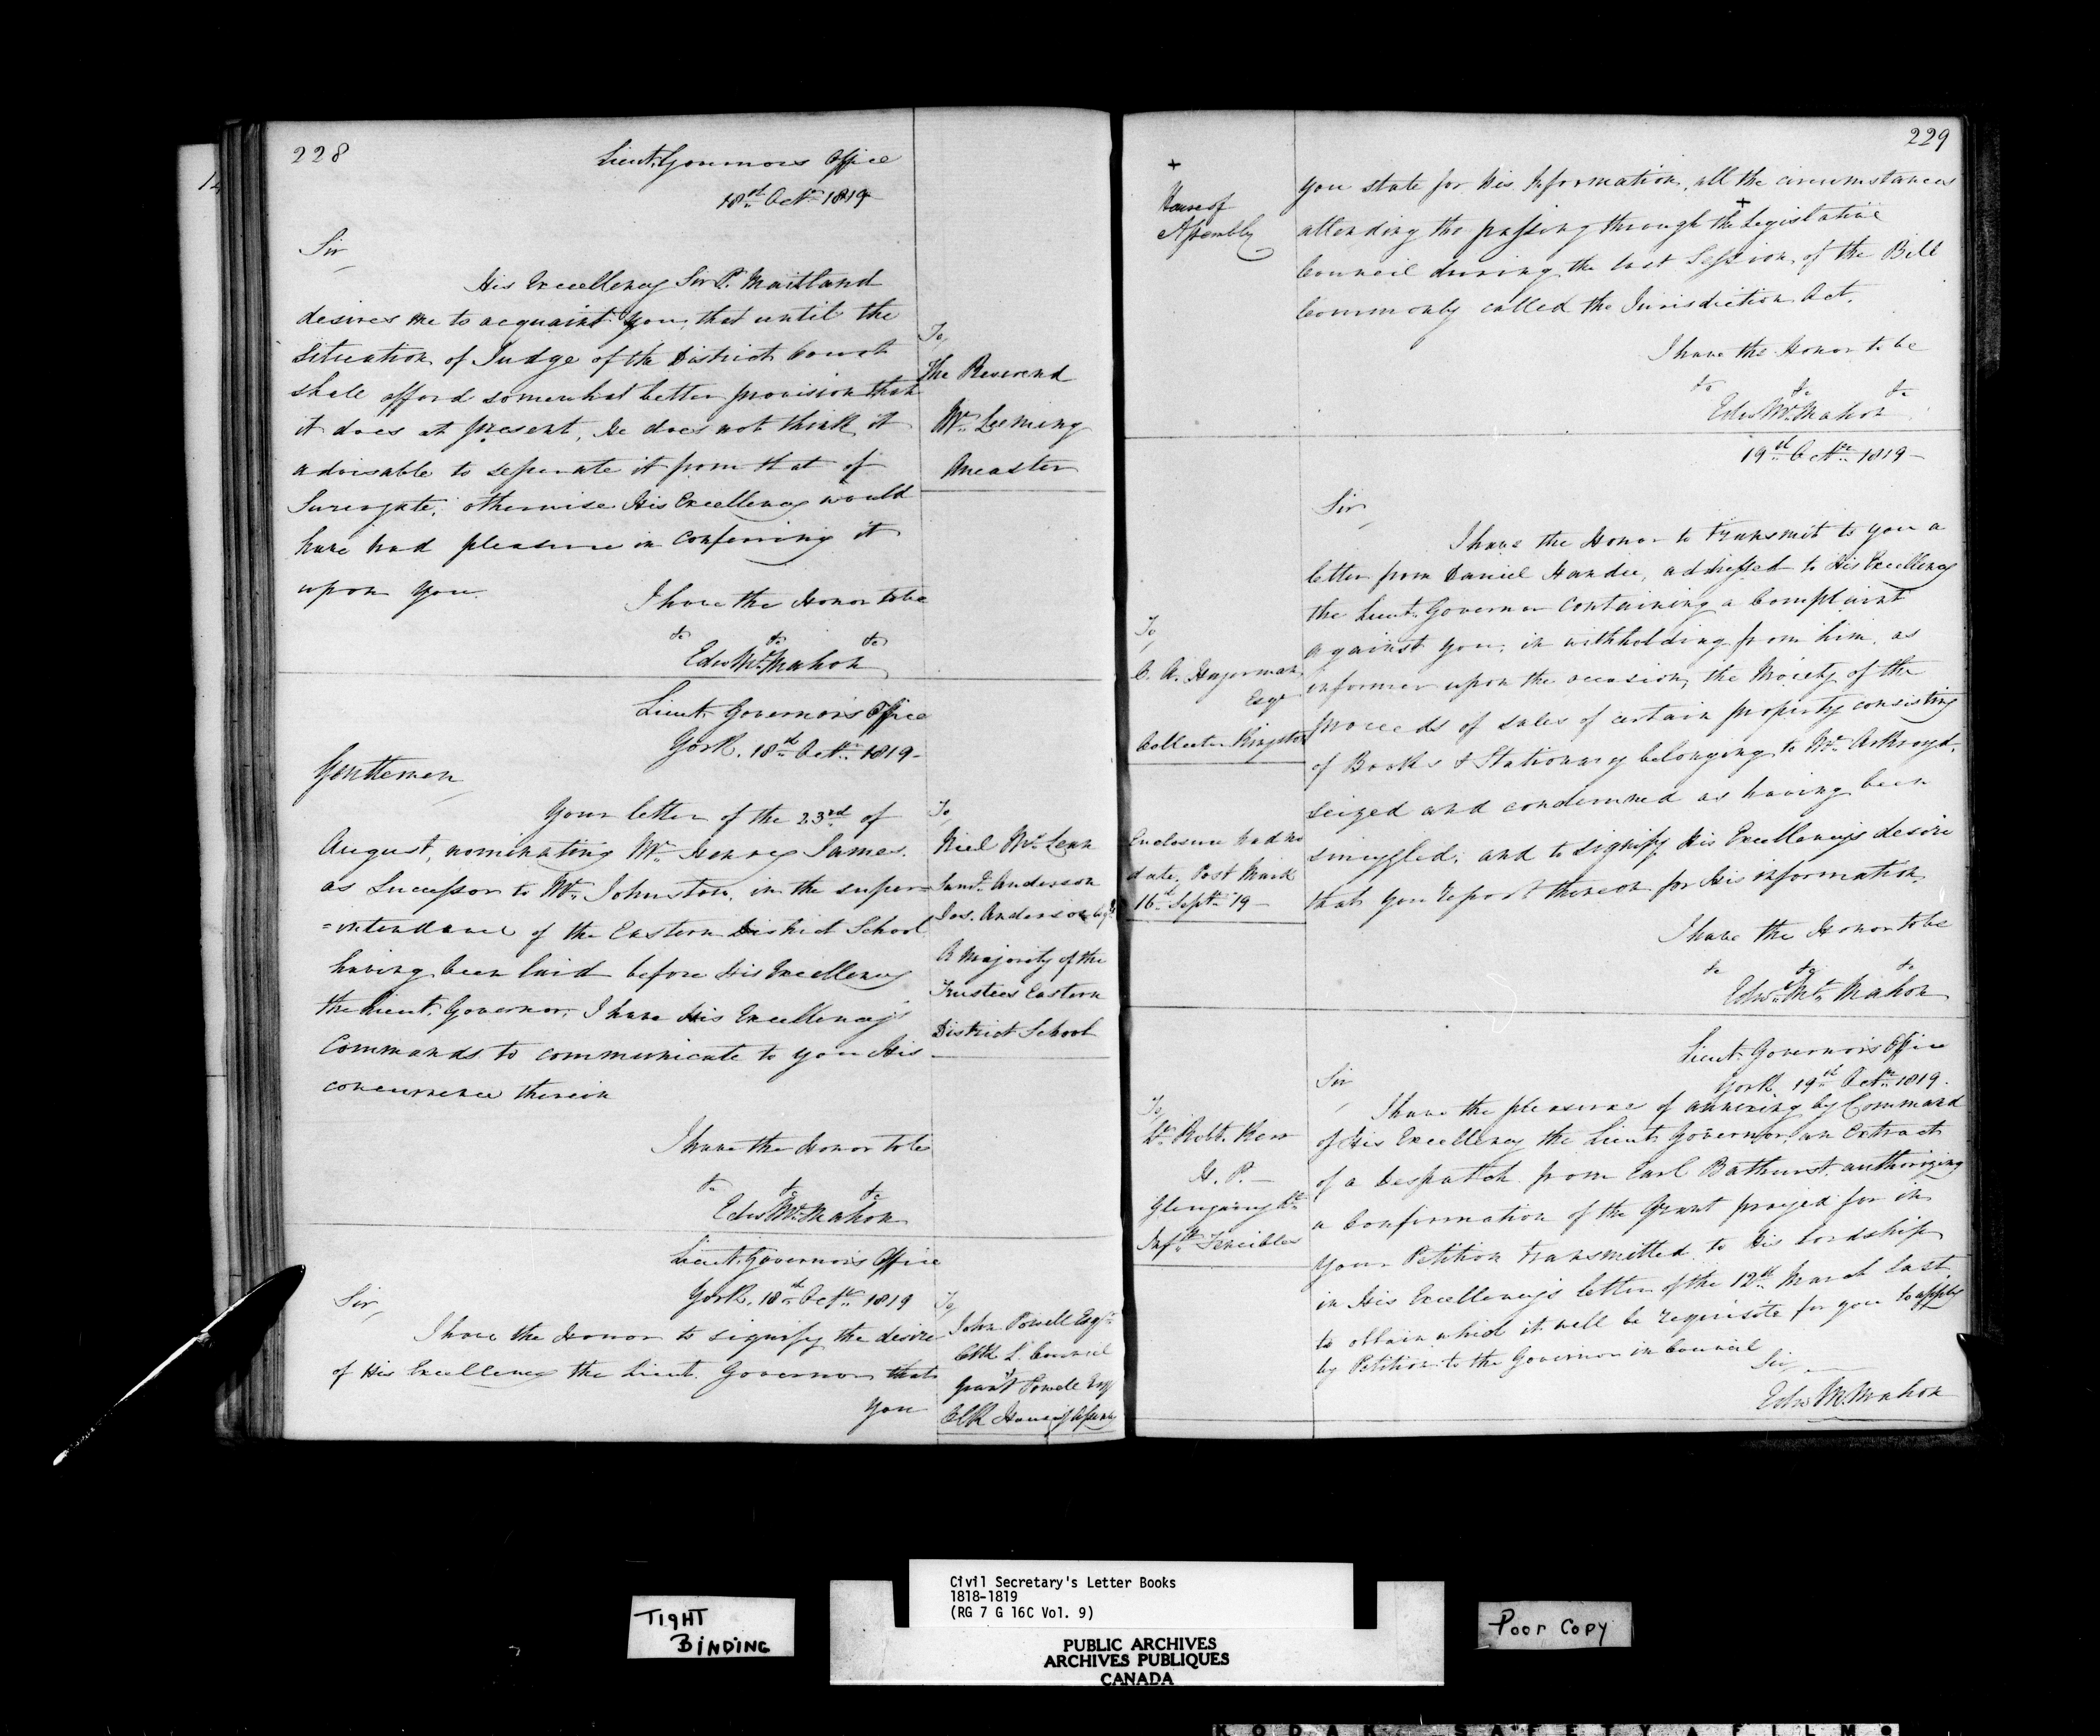 228
Lieut. Governors Office
18th Octr. 1819
Sir
His Excellency Sir P. Maitland
desires me to acquaint you, that until the
Situation of Judge of the District Court
shall afford somewhat better provision than
it does at present, He does not think it
advisable to seperate it from that of
Surrogate; otherwise His Excellency would
have had pleasure in conferring it
upon you.
I have the Honor to be
&c &c &c
Edwd McMahon
To,
The Reverend
Mr. Leeming
Ancaster
Lieut. Governor's Office
York, 18th Octr. 1819-
Gentlemen
Your letter of the 23rd of
August, nominating Mr. Henry James.
as Successor to Mr. Johnston, in the super-
=intendance of the Eastern District School
having been laid before His Excellency
the Lieut. Governor, I have His Excellency's
Commands to communicate to you His
concurrence therein
I have the Honor to be
&c &c &c
Edwd McMahon
To,
Niel McLean
Saml. Anderson
Jos. Anderson Esqrs
A Majority of the
Trustees Eastern
District School
Lieut. Governor's Office
York, 18th Octr. 1819
Sir,
I have the Honor to signify the desire
of His Excellency the Lieut. Governor that
you
To,
John Powell Esqr.
Clk L. Council
Grant Powell Esqr
Clk House of Assembly
229
+
House of
Assembly
you state for His Information, all the circumstances
+
attending the passing through the Legislative
Council during the last Session, of the Bill
Commonly called the Jurisdiction Act.
I have the Honor to be
&c &c &c
Edwd McMahon
19th Octr. 1819-
Sir
I have the Honor to transmit to you a
letter from Daniel Handie, addressed to His Excellency
the Lieut. Governor containing a Complaint
against you, in withholding from him, as
informer upon the occasion, the Moiety of the
proceeds of sales of certain property consisting
of Books & Stationary belonging to Mr.
seized and condemned as having been
smuggled; and to signify His Excellency's desire
that you report thereon for His information.
I have the Honor to be
&c &c &c
Edwd. Mc Mahon
To,
C. A. Hagerman
Esqr
Collector Kingston
Enclosure had no
date, Post Mark
16th Septr. 19-
Lieut. Governor's Office
York 19th Octr. 1819.
Sir
I have the pleasure of annexing by Command
of His Excellency the Lieut. Governor, an Extract
of a Despatch from Earl Bathurst, authorizing
a Confirmation of the Grant prayed for in
your Petition transmitted to His Lordship
in His Excellency's letter of the 12th March last
to obtain which it will be requisite for you to apply
by Petition to the Governor in Council
Sir
Edwd McMahon
To,
Lt. Robt. Kerr
H. P. -
Glengarry Lt.
Infty. Fencibles
TIGHT
BINDING
Civil Secretary's Letter Books
1818-1819
(RG 7 G 16C Vol. 9)
PUBLIC ARCHIVES
ARCHIVES PUBLIQUES
CANADA
Poor Copy
KODAK SAFETY FILM